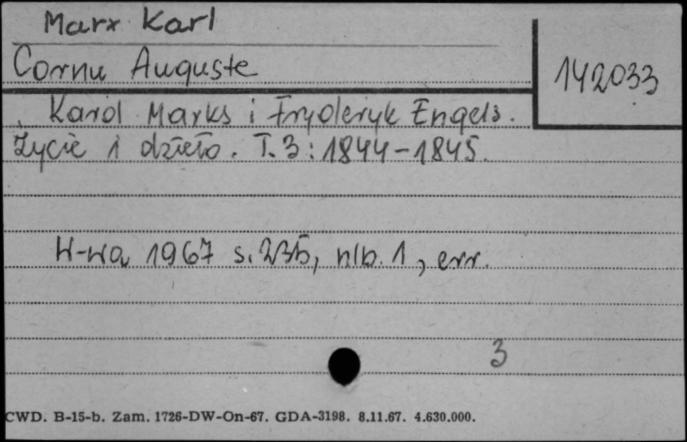 Marx Karl
Cornu Auguste
142033
Karol Marks i Fryderyk Engels.
Życie i dzieło. T. 3: 1844-1845.
W-wa 1967 s. 235, nlb. 1, err.
3
CWD. B-15-b. Zam. 1726-DW-On-67. GDA-3198. 8.11.67. 4.630.000.